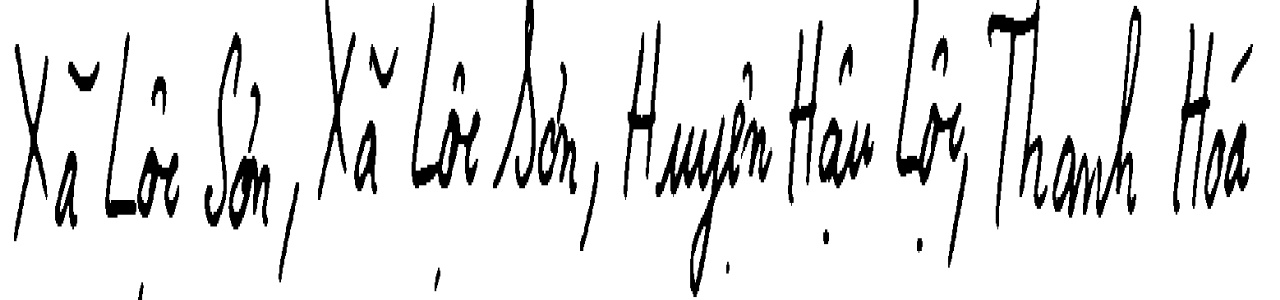 Xã Lộc Sơn, Xã Lộc Sơn, Huyện Hậu Lộc, Thanh Hóa